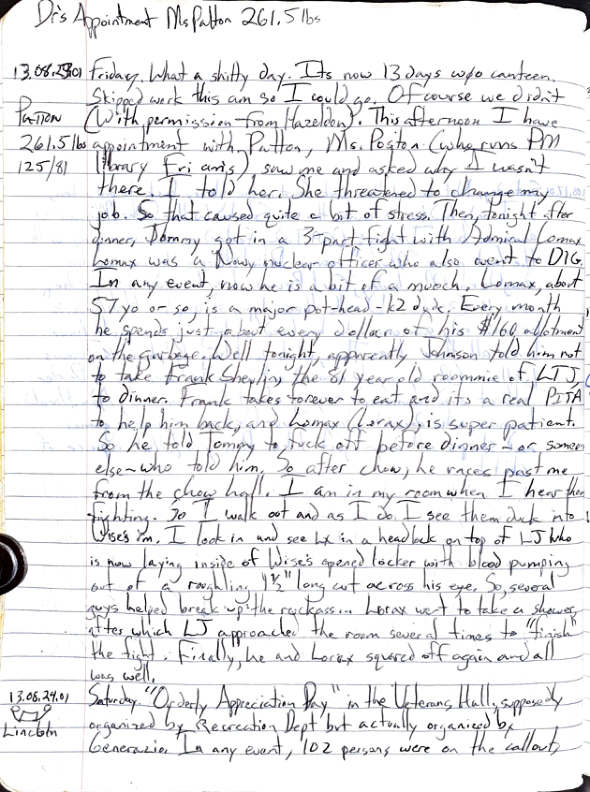 Dr's Appointment Ms Patton 261.5 lbs
13.08.23.01 Friday. What a shitty day. Its now 13 days w/o canteen.
Skipped work this am so I could go. Of course we didn't
Patton (With permission from Hazelden). This afternoon I have
261.5 lbs appointment with Patton, Ms. Poston (who runs PM
125/81 library Fri ams) saw me and asked why I wasn't
there. I told her. She threatened to change my
job. So that caused quite a bit of stress. Then, tonight after
dinner, Tommy got in a 3-part fight with Admiral Lomax
Lomax was a Navy nuclear officer who also went to DIG.
In any event, now he is a bit of a mooch. Lomax, about
57 yo or so, is a major pot-head - K2 dude. Every month
he spends just about every dollar of his $160 allotment
on the garbage. Well tonight, apparently Johnson told him not
to take Frank Shevlin, the 81 year old roommie of LTJ,
to dinner. Frank takes forever to eat and its a real PITA
to help him back, and Lomax (Lorax), is super patient.
So he told Tommy to fuck off before dinner - or someone
else - who told him. So after chow, he races past me
from the chow hall. I am in my room when I hear them
fighting. So I walk out and as I do I see them duck into
Wise's rm. I look in and see Lx in a headlock on top of LJ who
is now laying inside of Wise's opened locker with blood pumping
out of a roughling 1 1/2" long cut across his eye. So, several
guys helped break up the ruckass... Lorax went to take a shower,
after which LJ approached the room several times to "finish"
the fight. Finally, he and Lorax squared off again and all
was well.
13.08.24.01 Saturday. "Orderly Appreciation Day" in the Veterans Hall, supposedly
Lincoln organized by Recreation Dept but actually organized by
Generazio. In any event, 102 persons were on the callout,